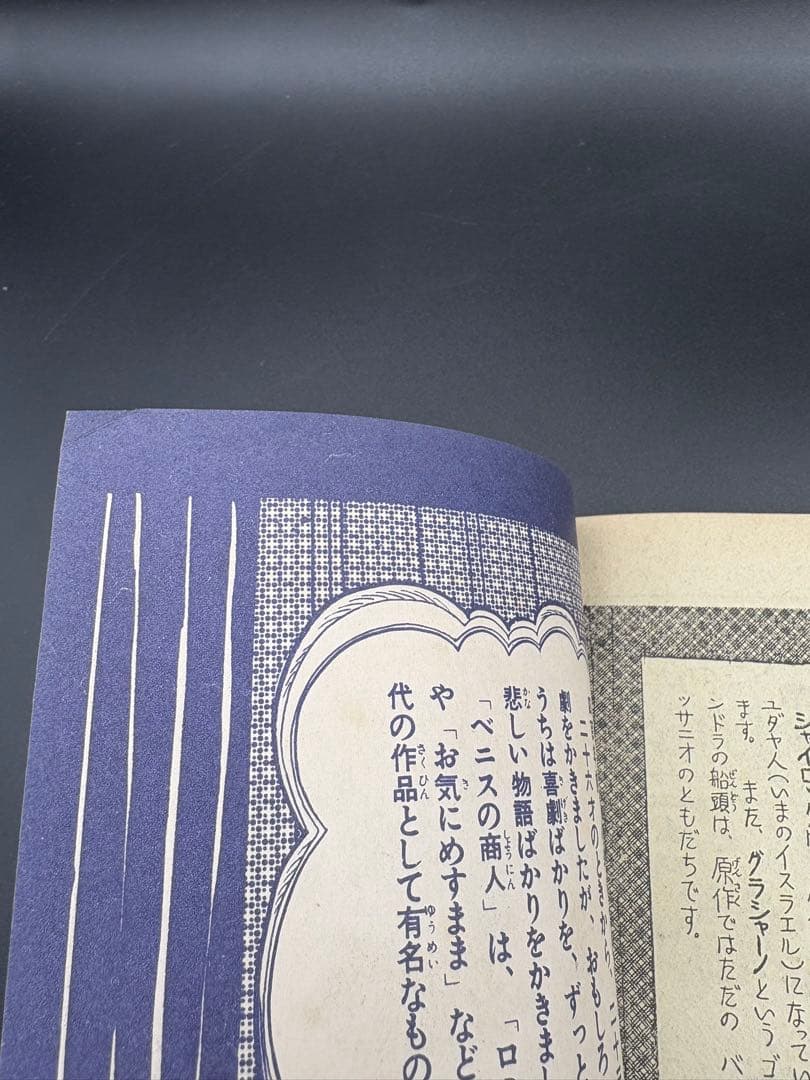 シャイロ
ユダヤ人(いまのイスラエル)になってい
ます。 また、グラシャーノというゴ
ンドラの船頭は、原作ではただの バ
ッサニオのともだちです。
二十六才のときから、二十
劇をかきましたが、おもしろ
うちは喜劇ばかりを、ずっと
悲しい物語ばかりをかきまし
「ベニスの商人」は、「ロ
や「お気にめすまま」など
代の作品として有名なもの